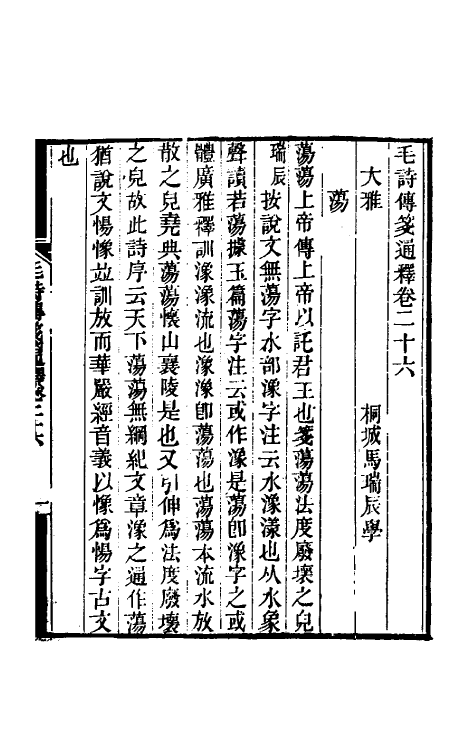 毛詩傳箋通釋卷二十六
桐城馬瑞辰學
大雅
蕩
蕩蕩上帝傳上帝以託君王也箋蕩蕩法度廢壞之皃
瑞辰按說文無蕩字水部潒字注云水潒瀁也从水象
聲讀若蕩據玉篇蕩字注云或作潒是蕩卽潒字之或
體廣雅釋訓潒潒流也潒潒卽蕩蕩也蕩蕩本流水放
散之皃堯典蕩蕩懷山襄陵是也又引伸爲法度廢壞
之皃故此詩序云天下蕩蕩無綱紀文章潒之通作蕩
猶說文愓惕竝訓放而華嚴經音義以像爲愓字古文
也
毛詩傳箋通釋卷二十六
一